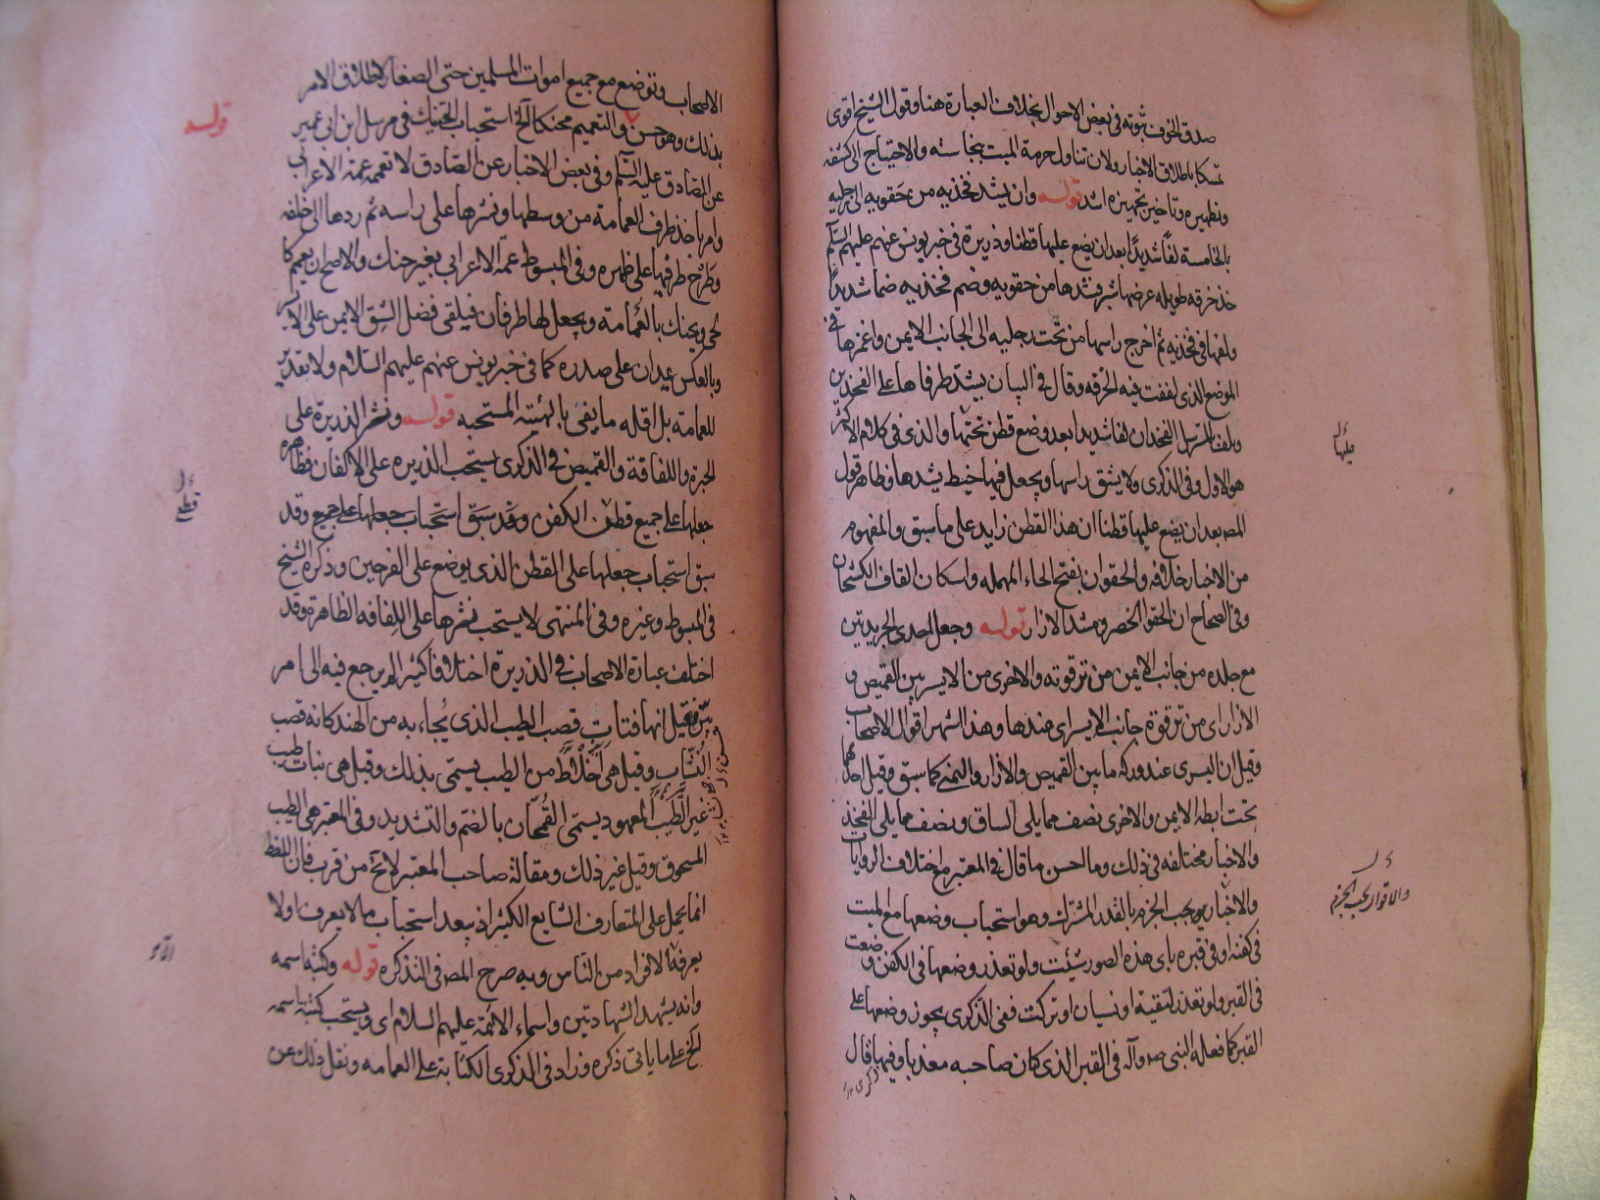 صدق الخوف ثبوته فى بعض الاحوال بخلاف العبارة هنا وقول الشيخ اقوى
تمسكا باطلاق الاخبار ولان تناول حرمة الميت بنجاسته والاحتياج الى كشفه
وتطهيره وتاخير تجهيزه اشد قوله وان يشد فخذيه من حقويه الى رجليه
بالخامسة لفا شديدا بعد ان يضع عليها قطنا وذريرة فى خبر يونس عنهم عليهم السلم
خذ خرقه طويله عرضها شبر فشدها من حقويه وضم فخذيه ضما شديدا
ولفها فى فخذيه ثم اخرج راسها من تحت رجليه الى الجانب الايمن واغمزها فى
الموضع الذى لففت فيه الخرقه وقال فى البيان يشد طرفاها على الفخذين
ويلف بالمسترسل الفخذان لفا شديدا بعد وضع قطن تحتها والذى فى كلام الاكثر
هو الاول وفى الذكرى ولا يشق راسها ويجعل فيها خيط يشدها وظاهر قول
المصه بعد ان يضع عليها قطنا ان هذا القطن زايد على ما سبق والمفهوم
من الاخبار خلافه والحقوان بفتح الحاء المهمله واسكان القاف الكشحان
وفى الصحاح ان الحقو الخصر ومشد الازار قوله وجعل احدى الجريدتين
مع جلده من جانب الايمن من ترقوته والاخرى من الايسر بين القميص و
الازار اى من ترقوة جانب الايسر اى عندها وهذا اشهر اقوال الاصحاب
وقيل ان اليسرى عند وركه ما بين القميص والازار واليمنى كما سبق وقيل احدهما
تحت ابطه الايمن والاخرى نصف مما يلى الساق ونصف مما يلى الفخذ
والاخبار مختلفه فى ذلك وما احسن ما قال فى المعتبر مع اختلاف الروايات
والاخبار يوجب الجزم بالقدر المشترك وهو استحباب وضعها مع الميت
فى كفنه او فى قبره باى هذه الصور شئت ولو تعذر وضعها فى الكفن وضعت
فى القبر ولو تعذر لتقية او نسيان او تركت ففى الذكرى يجوز وضعها على
القبر كما فعله النبى صه وآله فى القبر الذى كان صاحبه معذبا وفيها قال
عليها
والاقوال يجب الجزم
الاصحاب وتوضع مع جميع اموات المسلمين حتى الصغار لاطلاق الامر
بذلك وهو حسن والتعميم محنكا الخ استحباب الحتنيك فى مرسل ابن ابى عمير
قوله
عن الصادق عليه السلم وفى بعض الاخبار عن الصادق لا تعممه عمة الاعرابى
وامر باخذ طرف العمامة من وسطها ونشرها على راسه ثم ردها الى خلفه
وطرح طرفيها على ظهره وفى المبسوط عمة الاعرابى بغير حنك والاصح ان يعمم كما
لحى ويحنك بالعمامة ويجعل لها طرفان فيلقى فضل الشق الايمن على الايسر
وبالعكس يمدان على صدره كما فى خبر يونس عنهم عليهم السلام ولا تقدير
للعمامة بل اقله ما يفى بالهيئة المستحبه قوله ونثر الذريرة على
الحبرة واللفافة والقميص فى الذكرى يستحب الذريره على الاكفان فظاهره
جعلها على جميع قطن الكفن وقد سبق استحباب جعلها على جميع وقد
قطع
سبق استحباب جعلها على القطن الذى يوضع على الفرجين وذكره الشيخ
فى المبسوط وغيره وفى المنتهى لا يستحب نثرها على اللفافه الظاهرة وقد
اختلف عبارة الاصحاب فى الذريرة اختلافا كثيرا لم يرجع فيه الى امر
بين فقيل انها فتات قصب الطيب الذى يجاء به من الهند كانه قصب
النشاب وقيل هى اخلاط من الطيب يسمى بذلك وقيل هى نبات طيب
غير الطيب المعهود يسمى القمحان بالضم والتشديد وفى المعتبر هى الطيب
المسحوق وقيل غير ذلك ومقالة صاحب المعتبر لائح من قرب فان اللفظ
انما يحمل على المتعارف الشايع الكثير اذ يبعد استحباب ما لا يعرف اولا
يعرفه الافراد من الناس وبه صرح المصه فى التذكره قوله وكتبة اسمه
وانه يشهد الشهادتين واسماء الائمة عليهم السلام اى ويستحب كتبة اسمه
الخ على ما ياتى ذكره وزاد فى الذكرى الكتابة على العمامه ونقل ذلك عن